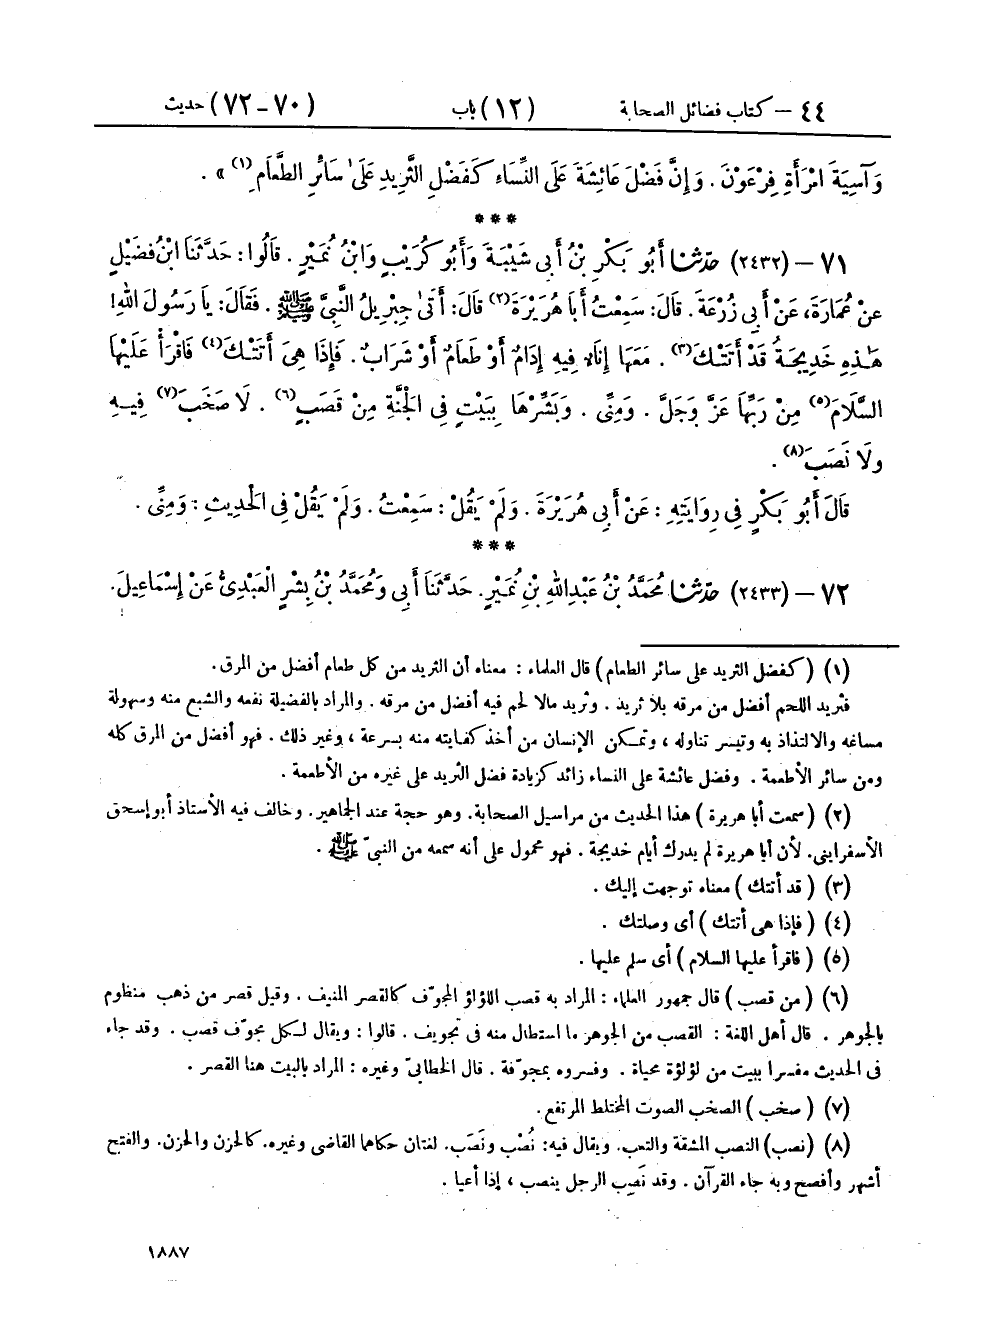 ٤٤ – كتاب فضائل الصحابة (١٢) باب (٧٠-٧٢) حديث
وَآسِيَةَ امْرَأَةِ فِرْعَوْنَ . وَإِنَّ فَضْلَ عَائِشَةَ عَلَى النِّسَاءِ كَفَضْلِ الثَّرِيدِ عَلَى سَائِرِ الطَّعَامِ(١) » .
***
٧١ – (٢٤٣٢) حدّثنا أَبُو بَكْرِ بْنُ أَبِي شَيْبَةَ وَأَبُو كُرَيْبٍ وَابْنُ نُمَيْرٍ . قَالُوا : حَدَّثَنَا ابْنُ فُضَيْلٍ
عَنْ عُمَارَةَ، عَنْ أَبِي زُرْعَةَ. قَالَ: سَمِعْتُ أَبَا هُرَيْرَةَ(٢) قَالَ: أَتَى جِبْرِيلُ النَّبِيَّ ﷺ . فَقَالَ: يَا رَسُولَ اللهِ!
هَٰذِهِ خَدِيجَةُ قَدْ أَتَتْكَ(٣) . مَعَهَا إِنَاءٌ فِيهِ إِدَامٌ أَوْ طَعَامٌ أَوْ شَرَابٌ . فَإِذَا هِىَ أَتَتْكَ(٤) فَاقْرَأْ عَلَيْهَا
السَّلَامَ(٥) مِنْ رَبِّهَا عَزَّ وَجَلَّ . وَمِنِّى . وَبَشِّرْهَا بِبَيْتٍ فِى الْجَنَّةِ مِنْ قَصَبٍ(٦) . لَا صَخَبَ(٧) فِيهِ
وَلَا نَصَبَ(٨) .
قَالَ أَبُو بَكْرٍ فِى رِوَايَتِهِ : عَنْ أَبِى هُرَيْرَةَ . وَلَمْ يَقُلْ : سَمِعْتُ . وَلَمْ يَقُلْ فِى الْحَدِيثِ : وَمِنِّى .
***
٧٢ – (٢٤٣٣) حدّثنا مُحَمَّدُ بْنُ عَبْدِاللهِ بْنِ نُمَيْرٍ. حَدَّثَنَا أَبِى وَمُحَمَّدُ بْنُ بِشْرٍ الْعَبْدِىُّ عَنْ إِسْمَاعِيلَ.
(١) ( كفضل الثريد على سائر الطعام ) قال العلماء : معناه أن الثريد من كل طعام أفضل من المرق.
فثريد اللحم أفضل من مرقه بلا ثريد . وثريد مالا لحم فيه أفضل من مرقه . والمراد بالفضيلة نفعه والشبع منه وسهولة
مساغه والالتذاذ به وتيسر تناوله ، وتمكن الإنسان من أخذ كفايته منه بسرعة ، وغير ذلك . فهو أفضل من المرق كله
ومن سائر الأطعمة . وفضل عائشة على النساء زائد كزيادة فضل الثريد على غيره من الأطعمة .
(٢) ( سمعت أبا هريرة ) هذا الحديث من مراسيل الصحابة. وهو حجة عند الجماهير. وخالف فيه الأستاذ أبو إسحق
الأسفراينى. لأن أبا هريرة لم يدرك أيام خديجة . فهو محمول على أنه سمعه من النبىّ ﷺ .
(٣) ( قد أتتك ) معناه توجهت إليك .
(٤) ( فإذا هى أتتك ) أى وصلتك .
(٥) ( فاقرأ عليها السلام ) أى سلم عليها .
(٦) ( من قصب ) قال جمهور العلماء : المراد به قصب اللؤلؤ المجوّف كالقصر المنيف . وقيل قصر من ذهب منظوم
بالجوهر . قال أهل اللغة : القصب من الجوهر ما استطال منه فى تجويف . قالوا : ويقال لكل مجوّف قصب . وقد جاء
فى الحديث مفسرا ببيت من لؤلؤة محياة . وفسروه بمجوّفة . قال الخطابىّ وغيره : المراد بالبيت هنا القصر .
(٧) ( صخب ) الصخب الصوت المختلط المرتفع.
(٨) (نصب) النصب المشقة والتعب. ويقال فيه: نُصْب ونَصَب. لغتان حكاهما القاضى وغيره. كالحزن والحزن. والفتح
أشهر وأفصح وبه جاء القرآن . وقد نَصِب الرجل ينصب ، إذا أعيا .
١٨٨٧